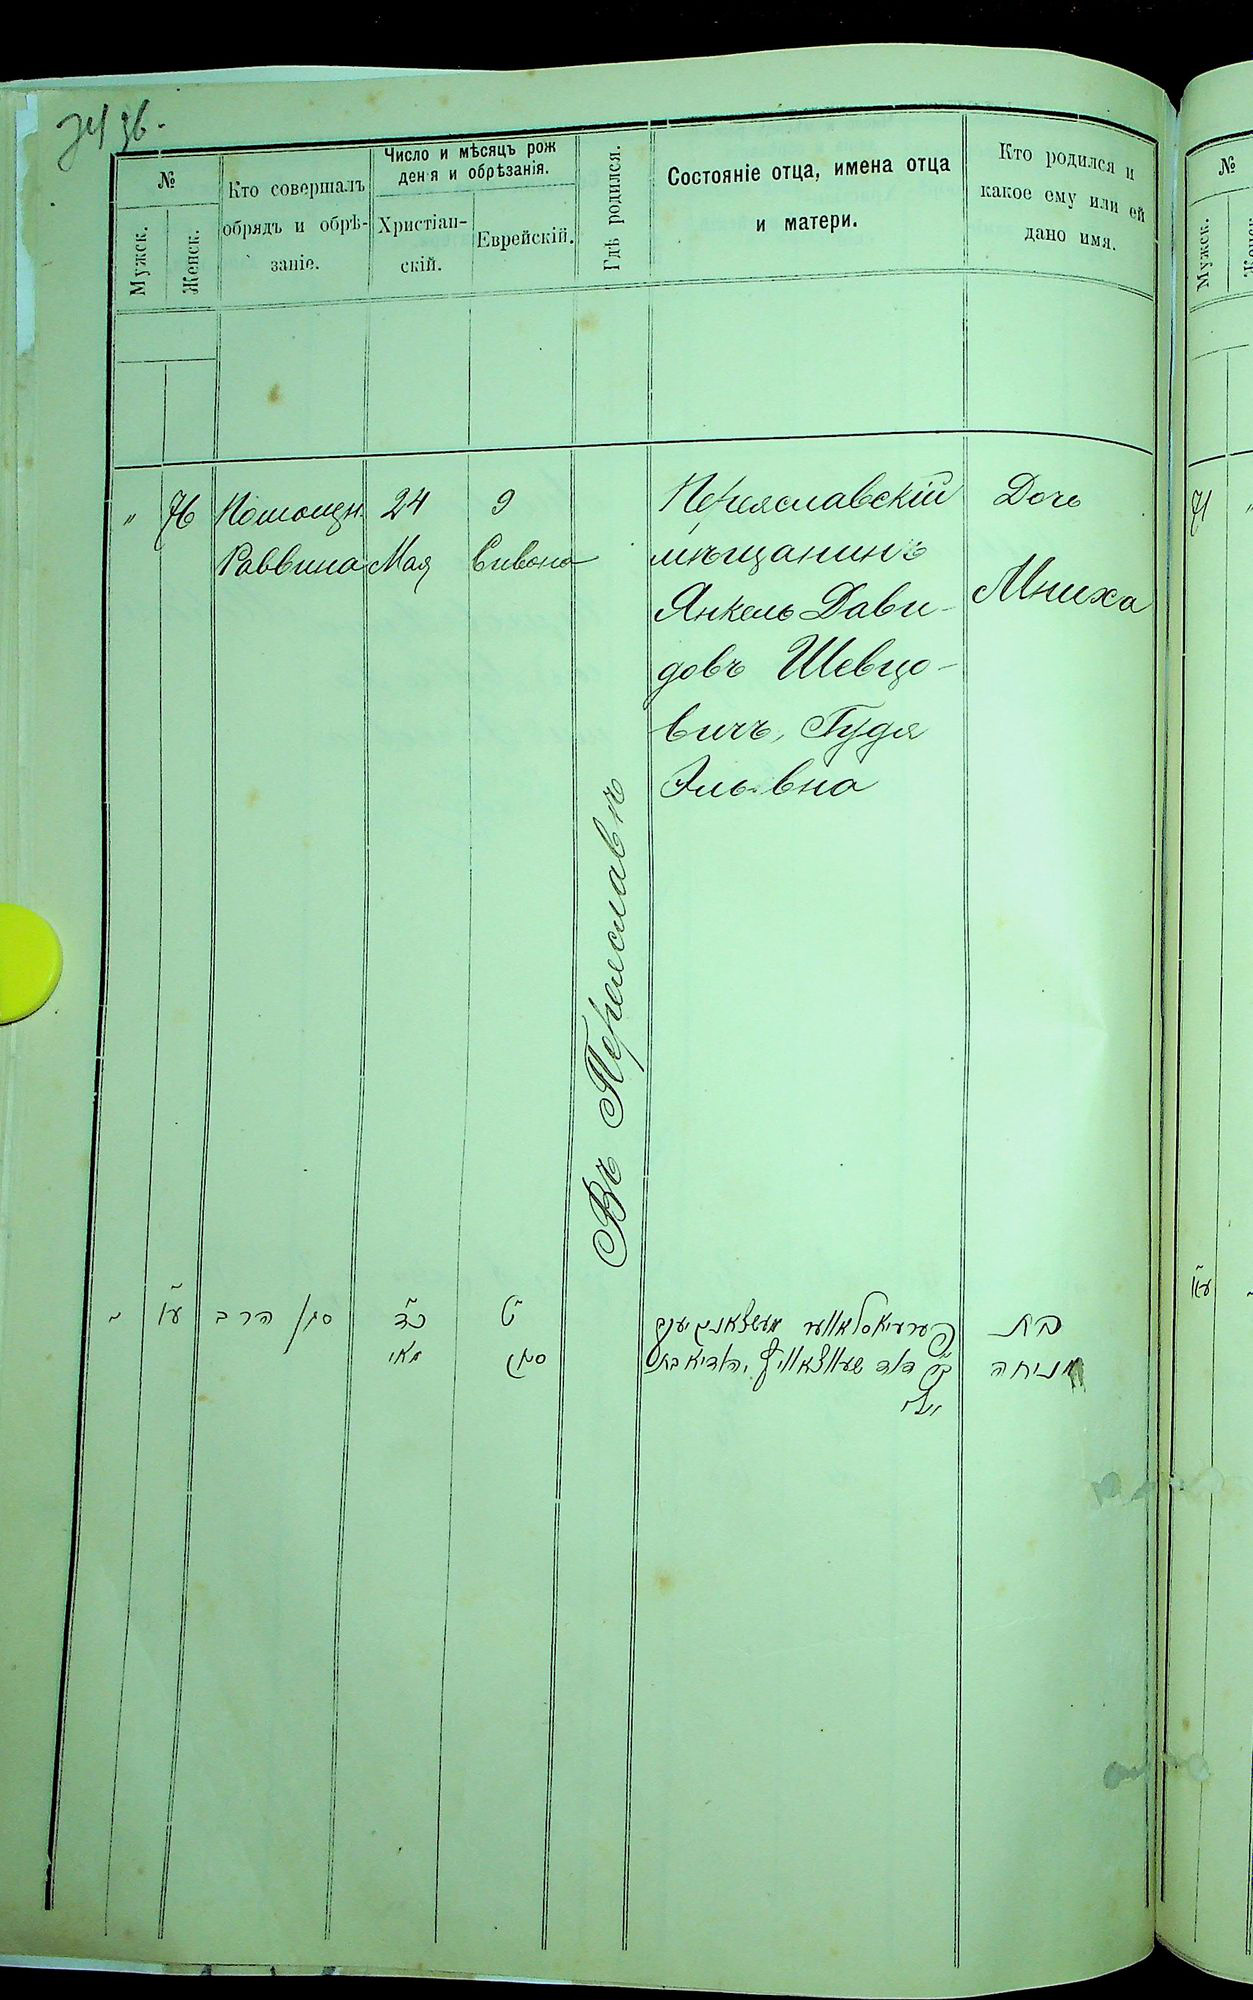 №
Мужск.
Женск.
Кто совершалъ
обрядъ и обрѣ-
заніе.
Число и мѣсяцъ рож
денія и обрѣзанія.
Христіан-
скій.
Еврейскій.
Гдѣ родился.
Состояніе отца, имена отца
и матери.
Кто родился и
какое ему или ей
дано имя.
" 76 Помощн. 24 9
Раввина Мая Сивона
Въ Переяславѣ
Переяславскій
мѣщанинъ
Янкель Дави-
довъ Шевцо-
вичъ, Гудя
Эль-вна
Дочь
Мниха
סגן הרב
כ״ד
מאי
ט
סיון
בת
מניחה
№
Мужск.
Женск.